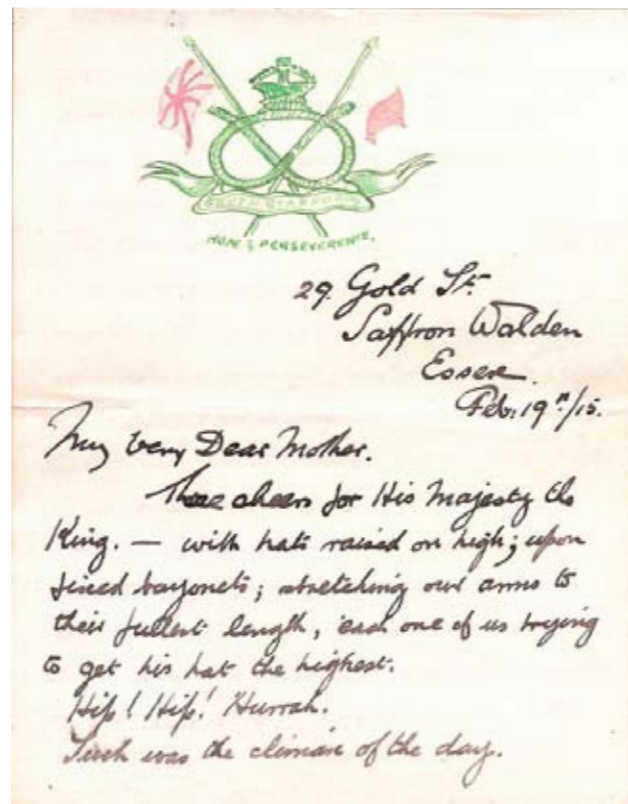 SOUTH STAFFORD
HOPE & PERSEVERENCE.
29. Gold St.
Saffron Walden
Essex.
Feb: 19th/15.
My Very Dear Mother.
Three cheers for His Majesty the
King. — with hats raised on high; upon
fixed bayonets; stretching our arms to
their fullest length, each one of us trying
to get his hat the highest.
Hip! Hip! Hurrah.
Such was the climax of the day.